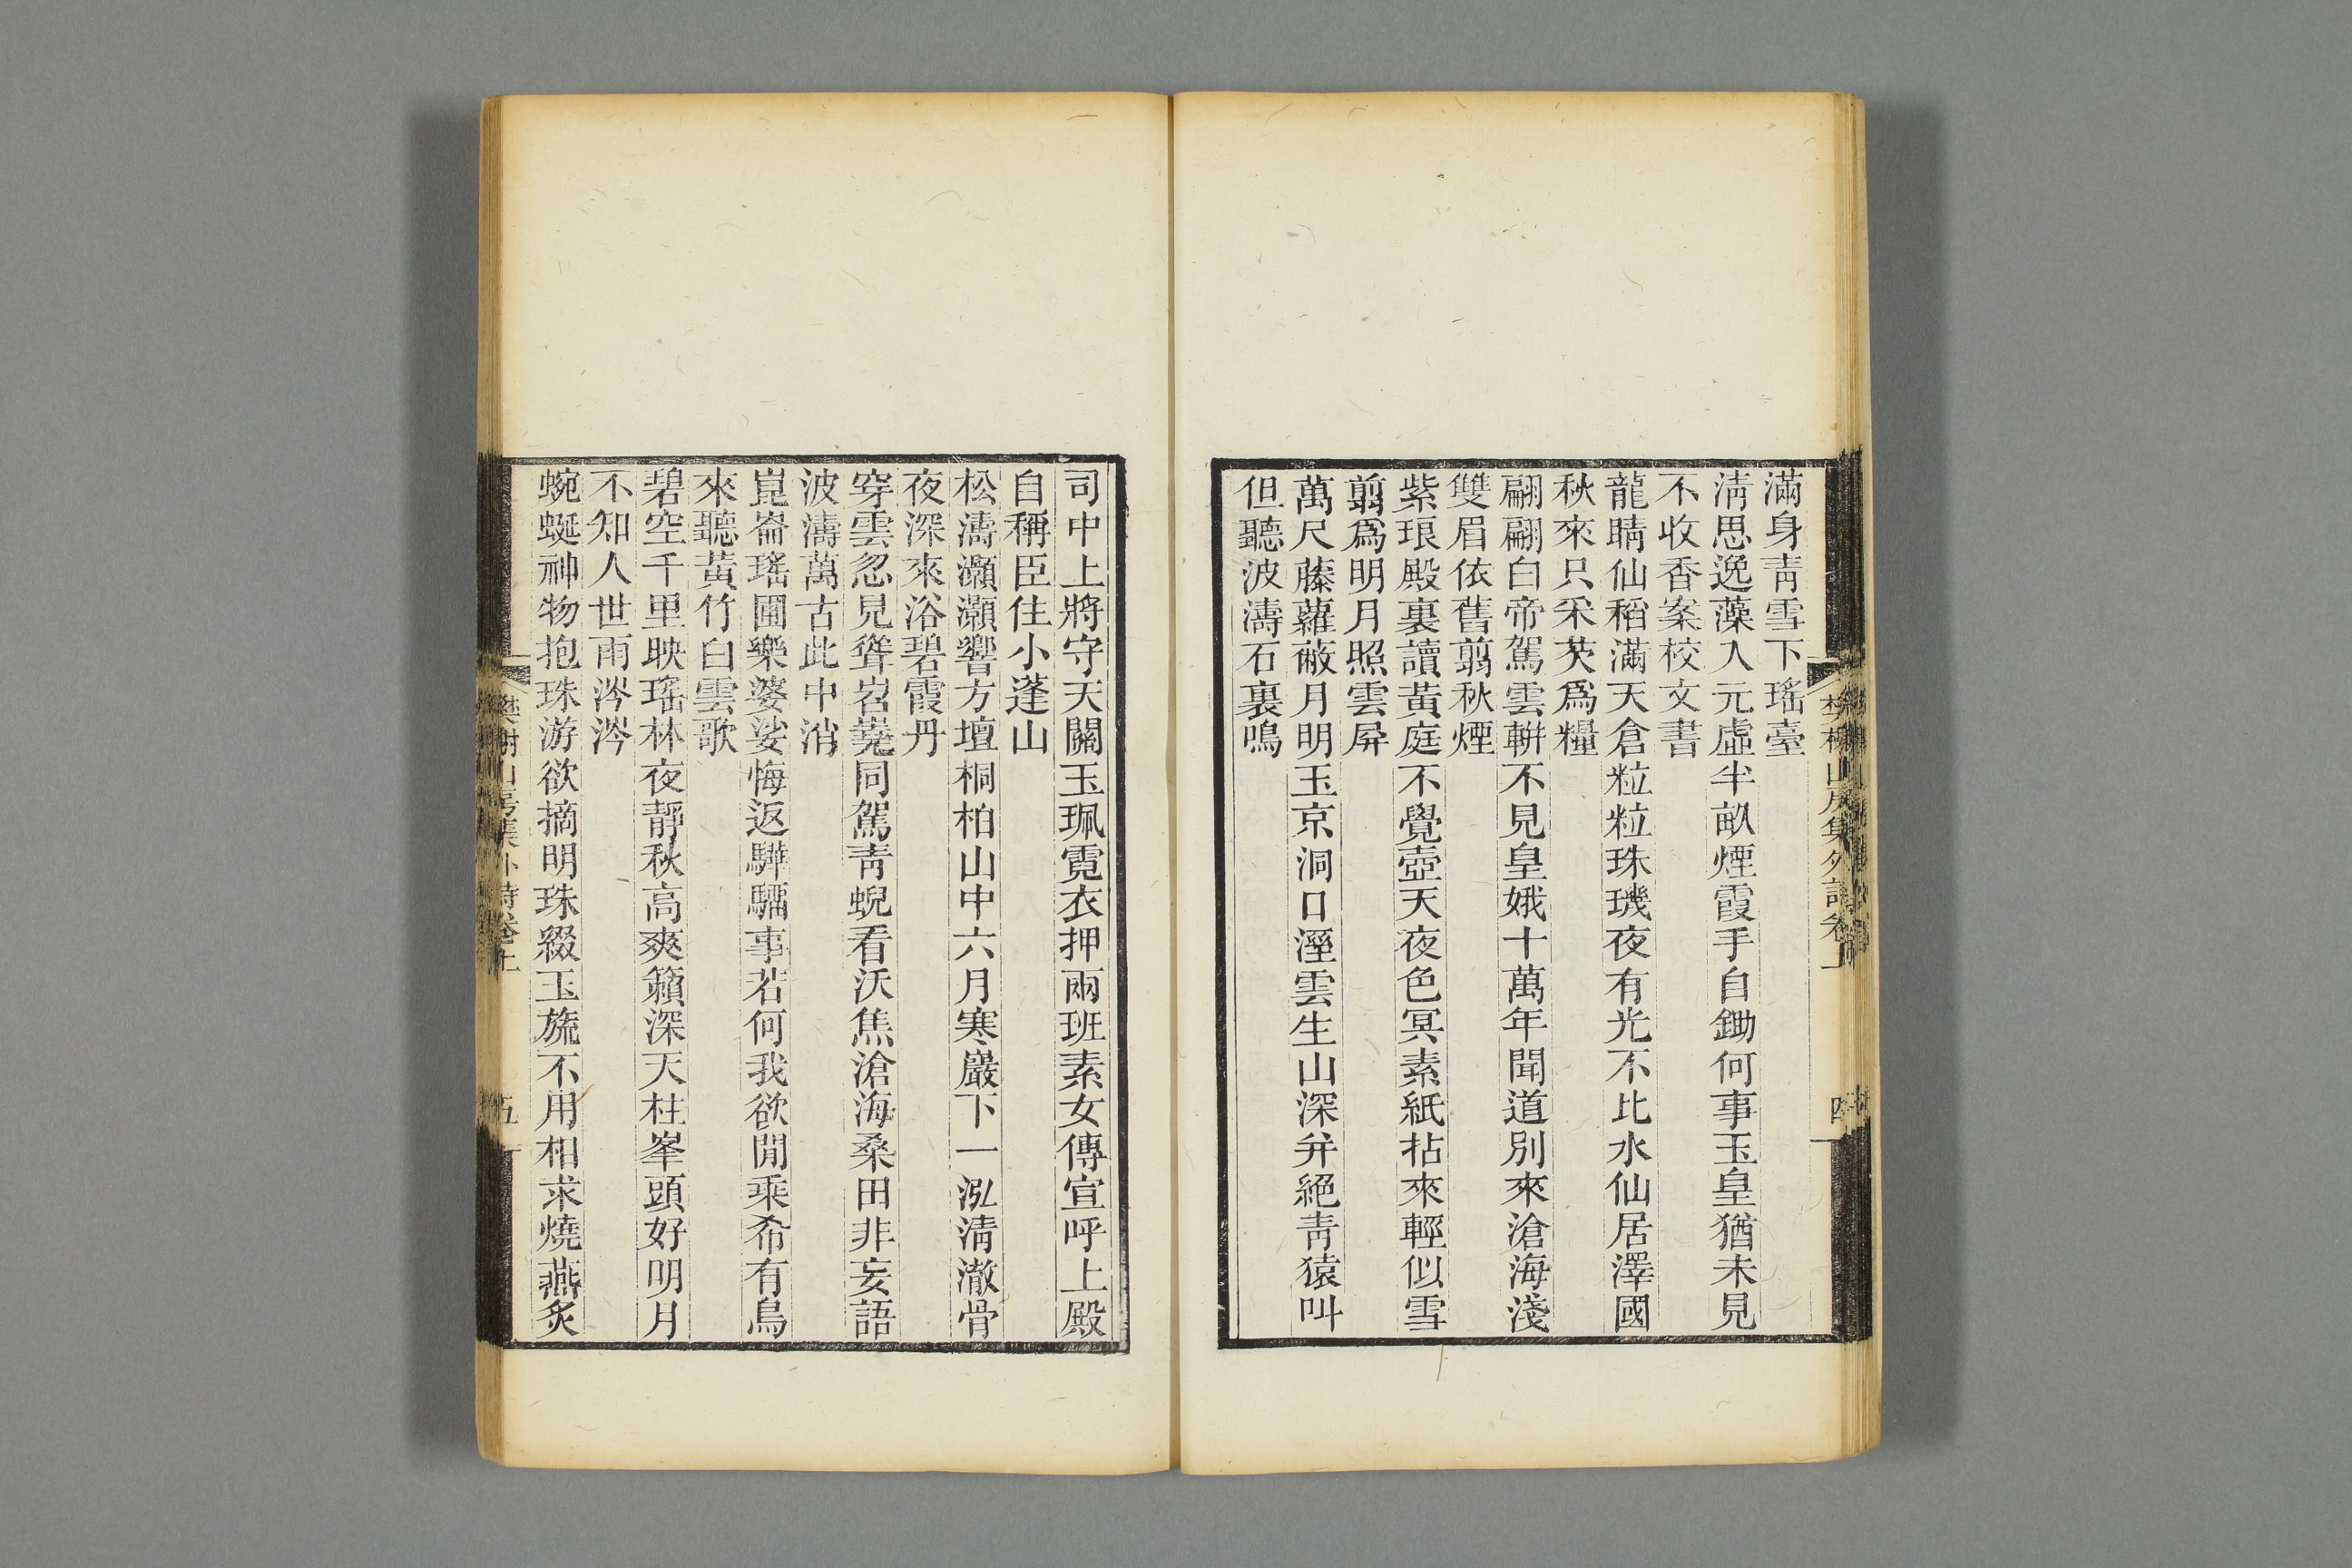 滿身靑雪下瑤臺
淸思逸藻入元虛半畝煙霞手自鋤何事玉皇猶未見
不收香案校文書
龍睛仙稻滿天倉粒粒珠璣夜有光不比水仙居澤國
秋來只采芡爲糧
翩翩白帝駕雲輧不見皇娥十萬年聞道別來滄海淺
雙眉依舊翦秋煙
紫琅殿裏讀黃庭不覺壺天夜色冥素紙拈來輕似雪
翦爲明月照雲屏
萬尺藤蘿蔽月明玉京洞口溼雲生山深幷絕靑猿叫
但聽波濤石裏鳴
司中上將守天關玉珮霓衣押兩班素女傳宣呼上殿
自稱臣住小蓬山
松濤灝灝響方壇桐柏山中六月寒巖下一泓淸澈骨
夜深來浴碧霞丹
穿雲忽見聳岧嶤同駕靑蜺看沃焦滄海桑田非妄語
波濤萬古此中消
崑崙瑤圃樂婆娑悔返驊騮事若何我欲閒乘希有鳥
來聽黃竹白雲歌
碧空千里映瑤林夜靜秋高爽籟深天柱峯頭好明月
不知人世雨涔涔
蜿蜒神物抱珠游欲摘明珠綴玉旒不用相求燒燕炙
樊榭山房集外詩卷上
五